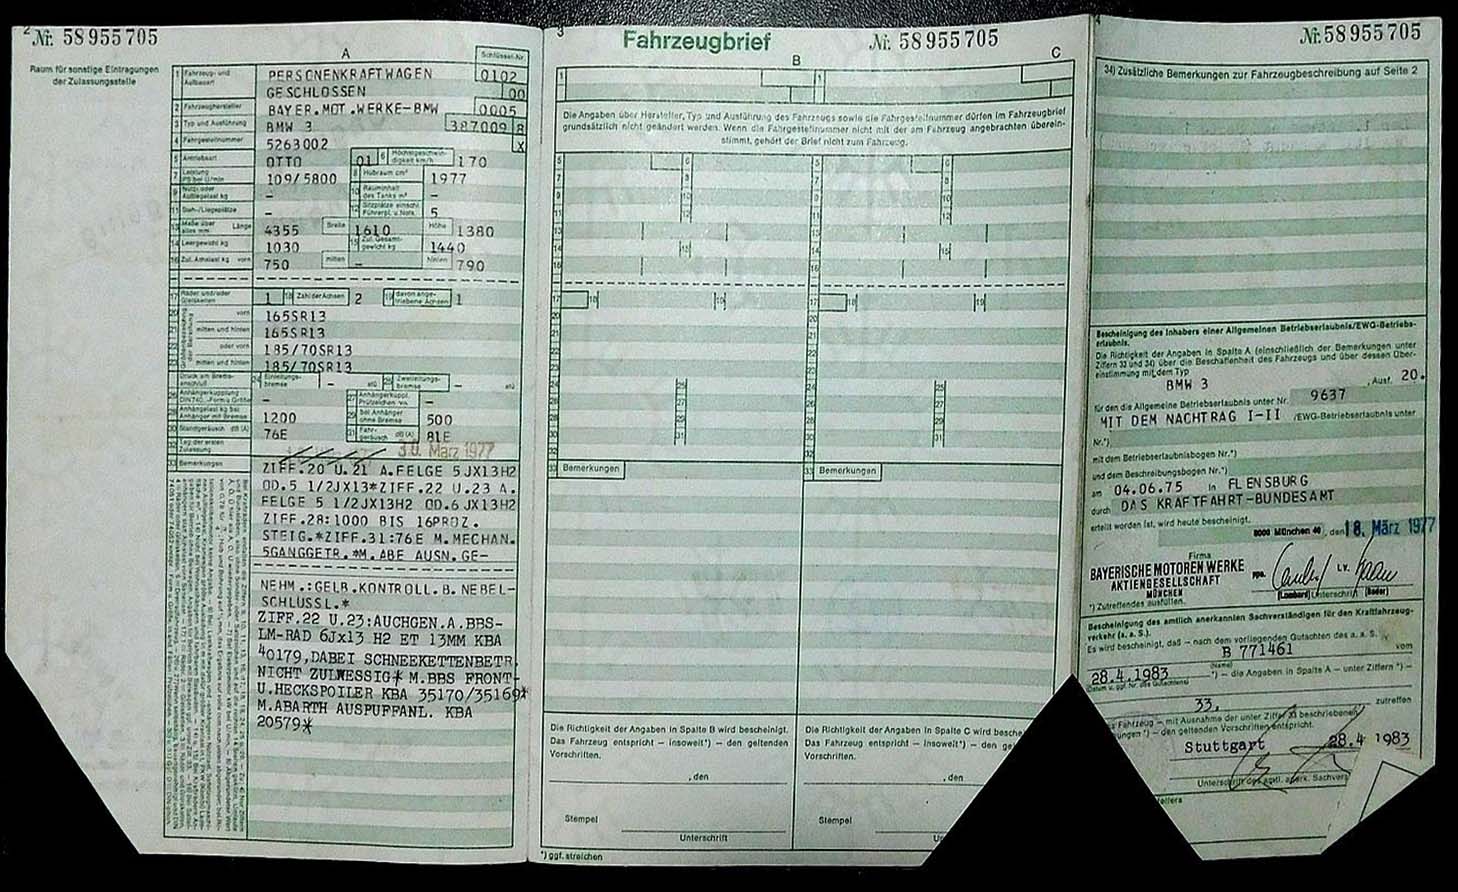 2
Nr. 58955705
Raum für sonstige Eintragungen
der Zulassungsstelle
A
Schlüssel-Nr.
1 Fahrzeug- und Aufbauart PERSONENKRAFTWAGEN 0102
GESCHLOSSEN 00
2 Fahrzeughersteller BAYER.MOT.WERKE-BMW 0005
3 Typ und Ausführung BMW 3 387009 8
4 Fahrgestellnummer 5263002 X
5 Antriebsart OTTO 01 6 Höchstgeschwindigkeit km/h 170
7 Leistung PS bei U/min 109/5800 8 Hubraum cm³ 1977
9 Nutz- oder Aufliegelast kg – 10 Rauminhalt des Tanks m³ –
11 Steh-/Liegeplätze – 12 Sitzplätze einschl. Führerpl. u. Nots. 5
13 Maße über alles mm Länge 4355 Breite 1610 Höhe 1380
14 Leergewicht kg 1030 15 Zul. Gesamtgewicht kg 1440
16 Zul. Achslast kg vorn 750 mitten – hinten 790
17 Räder und/oder Gleisketten 1 18 Zahl der Achsen 2 19 davon angetriebene Achsen 1
20 vorn 165SR13
21 mitten und hinten 165SR13
22 oder vorn 185/70SR13
23 mitten und hinten 185/70SR13
Druck am Bremsanschluß 24 Einleitungsbremse – atü 25 Zweileitungsbremse – atü
26 Anhängerkupplung DIN 740.., Form u. Größe – 27 Anhängerkuppl. Prüfzeichen –
28 Anhängelast kg bei Anhänger mit Bremse 1200 29 bei Anhänger ohne Bremse 500
30 Standgeräusch dB (A) 76E 31 Fahrgeräusch dB (A) 81E
32 Tag der ersten Zulassung 30. März 1977
33 Bemerkungen
ZIFF.20 U.21 A.FELGE 5JX13H2
OD.5 1/2JX13*ZIFF.22 U.23 A.
FELGE 5 1/2JX13H2 OD.6JX13H2
ZIFF.28:1000 BIS 16PROZ.
STEIG.*ZIFF.31:76E M.MECHAN.
5GANGGETR.*M.ABE AUSN.GE-
NEHM.:GELB.KONTROLL.B.NEBEL-
SCHLÜSSL.*
ZIFF.22 U.23:AUCHGEN.A.BBS-
LM-RAD 6Jx13 H2 ET 13MM KBA
40179,DABEI SCHNEEKETTENBETR.
NICHT ZULWESSIG* M.BBS FRONT-
U.HECKSPOILER KBA 35170/35169*
M.ABARTH AUSPUFFANL. KBA
20579*
3
Fahrzeugbrief
Nr. 58955705
B
C
Die Angaben über Hersteller, Typ und Ausführung des Fahrzeugs sowie die Fahrgestellnummer dürfen im Fahrzeugbrief
grundsätzlich nicht geändert werden. Wenn die Fahrgestellnummer nicht mit der am Fahrzeug angebrachten überein-
stimmt, gehört der Brief nicht zum Fahrzeug.
33 Bemerkungen
33 Bemerkungen
Die Richtigkeit der Angaben in Spalte B wird bescheinigt.
Das Fahrzeug entspricht – insoweit*) – den geltenden
Vorschriften.
, den
Stempel
Unterschrift
*) ggf. streichen
Die Richtigkeit der Angaben in Spalte C wird beschei
Das Fahrzeug entspricht – insoweit*) – den ge
Vorschriften.
, den
Stempel
4
Nr. 58955705
34) Zusätzliche Bemerkungen zur Fahrzeugbeschreibung auf Seite 2
Bescheinigung des Inhabers einer Allgemeinen Betriebserlaubnis/EWG-Betriebs-
erlaubnis.
Die Richtigkeit der Angaben in Spalte A (einschließlich der Bemerkungen unter
Ziffern 33 und 34) über die Beschaffenheit des Fahrzeugs und über dessen Über-
einstimmung mit dem Typ
BMW 3 , Ausf. 20.
für den die Allgemeine Betriebserlaubnis unter Nr. 9637
MIT DEM NACHTRAG I-II /EWG-Betriebserlaubnis unter
Nr.*)
mit dem Betriebserlaubnisbogen Nr.*)
und dem Beschreibungsbogen Nr.*)
am 04.06.75 in FLENSBURG
durch DAS KRAFTFAHRT-BUNDESAMT
erteilt worden ist, wird heute bescheinigt.
8000 München 40 , den 18. März 1977
Firma
BAYERISCHE MOTOREN WERKE
AKTIENGESELLSCHAFT
MÜNCHEN
ppa. i.V.
Unterschrift
*) Zutreffendes ausfüllen.
Bescheinigung des amtlich anerkannten Sachverständigen für den Kraftfahrzeug-
verkehr (a. a. S.).
Es wird bescheinigt, daß – nach dem vorliegenden Gutachten des a. a. S.
B 771461 vom
(Name)
28.4.1983 *) – die Angaben in Spalte A – unter Ziffern *) –
(Datum u. ggf. Nr. des Gutachtens)
33, zutreffen
Fahrzeug – mit Ausnahme der unter Ziffer 33 beschriebenen
ungen *) – den geltenden Vorschriften entspricht.
Stuttgart 28.4 1983
Unterschrift des amtl. anerk. Sachvers